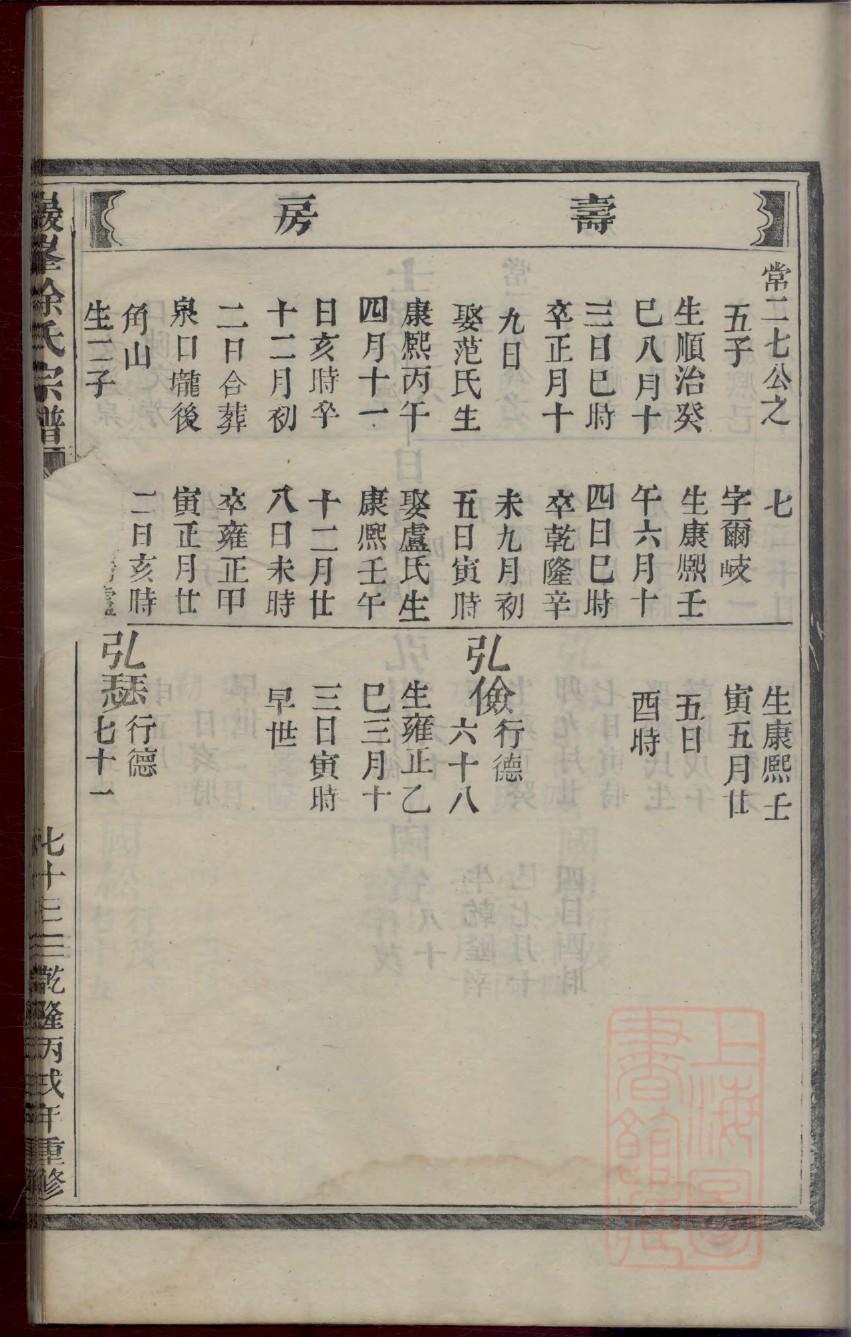 壽房
常二七公之
五子
生順治癸
巳八月十
三日巳時
卒正月十
九日
娶范氏生
康熙丙午
四月十一
日亥時卒
十二月初
二日合葬
泉口壠後
角山
生二子
七
字爾岐
生康熙壬
午六月十
四日巳時
卒乾隆辛
未九月初
五日寅時
娶盧氏生
康熙壬午
十二月廿
八日未時
卒雍正甲
寅正月廿
二日亥時
生康熙壬
寅五月廿
五日
酉時
弘儉行德
六十八
生雍正乙
巳三月十
三日寅時
早世
弘瑟行德
七十一
巖峯徐氏宗譜
七十三
乾隆丙戌年重修
上海圖書館藏